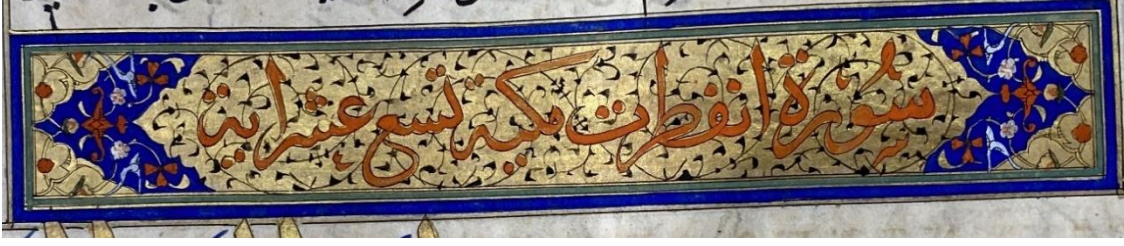 سُورة انفطرت مكية تسع عشر اية